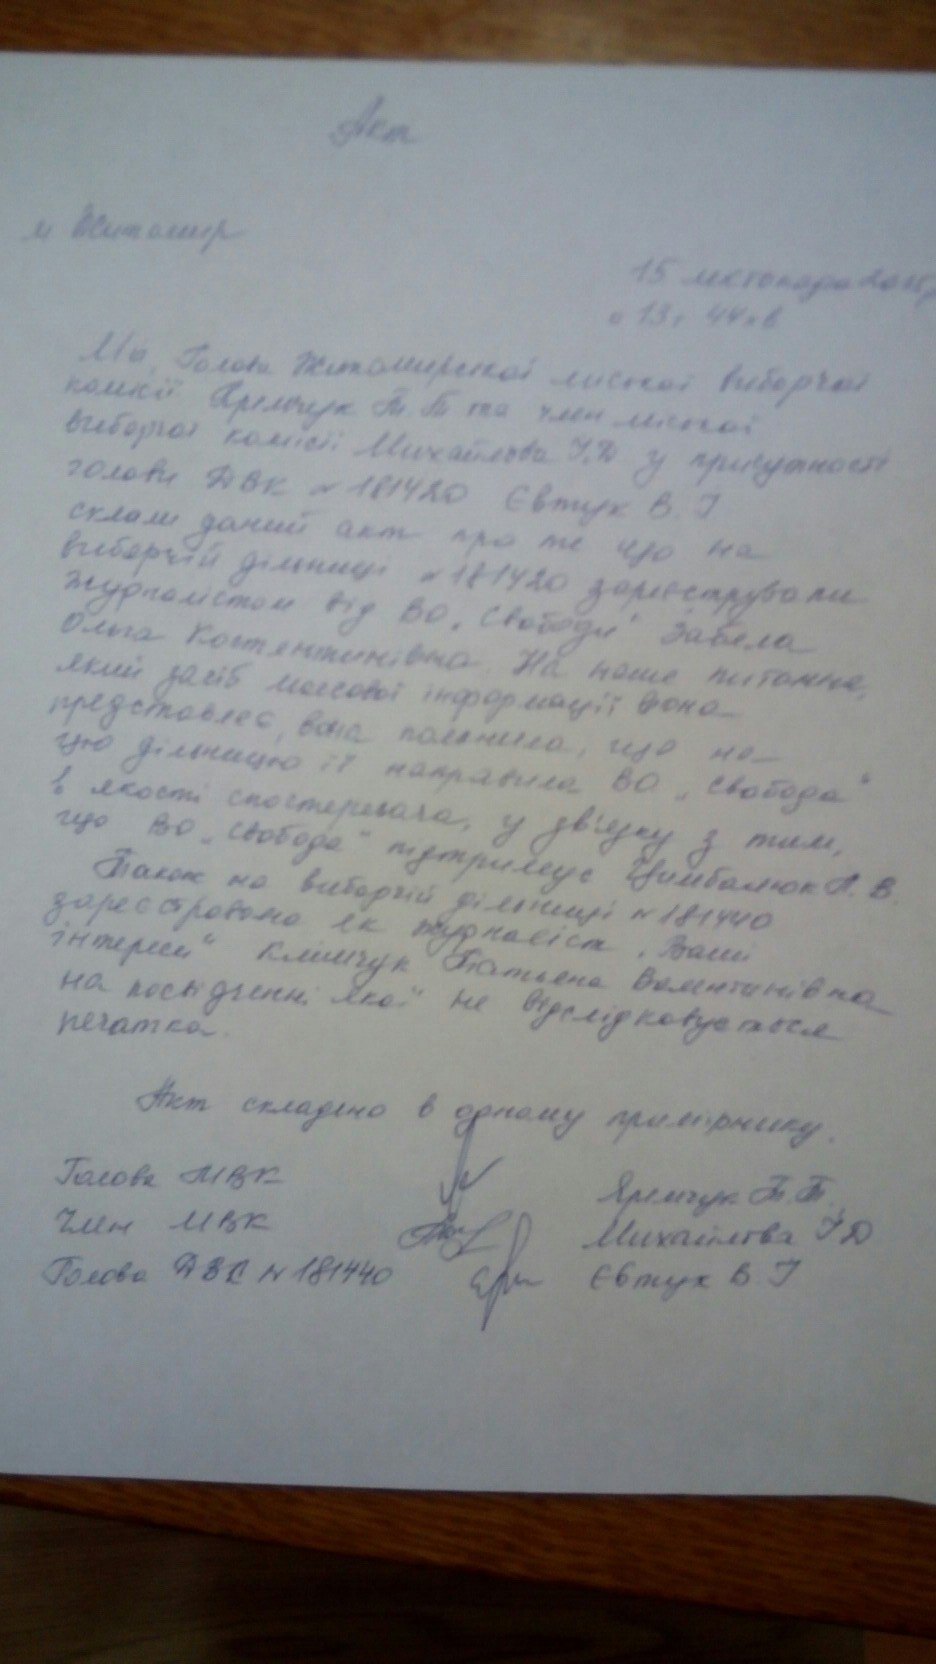 Акт
м Житомир
15 листопада 2015р
о 13 г 44 хв
Ми, Голова Житомирської міської виборчої
комісії Яремчук Т. Т та член міської
виборчої комісії Михайлова І.Д у присутності
голови ДВК № 181420 Євтух В. І
склали даний акт про те що на
виборчій дільниці № 181420 зареєстрували
журналістом від ВО „Свободи" Забела
Ольга Костянтинівна. На наше питання,
який засіб масової інформації вона
представляє, вона пояснила, що на
цю дільницю її направила ВО „Свобода"
в якості спостерігача, у зв'язку з тим,
що ВО „Свобода" підтримує Цимбалюк В.
Також на виборчій дільниці № 181440
зареєстровано як журналіст „Ваші
інтереси" Клімчук Татьяна Валентинівна
на посвідченні якої не відслідковується
печатка.
Акт складено в одному примірнику.
Голова МВК Яремчук Т. Т.
Член МВК Михайлова І Д
Голова ДВК № 181440 Євтух В. І